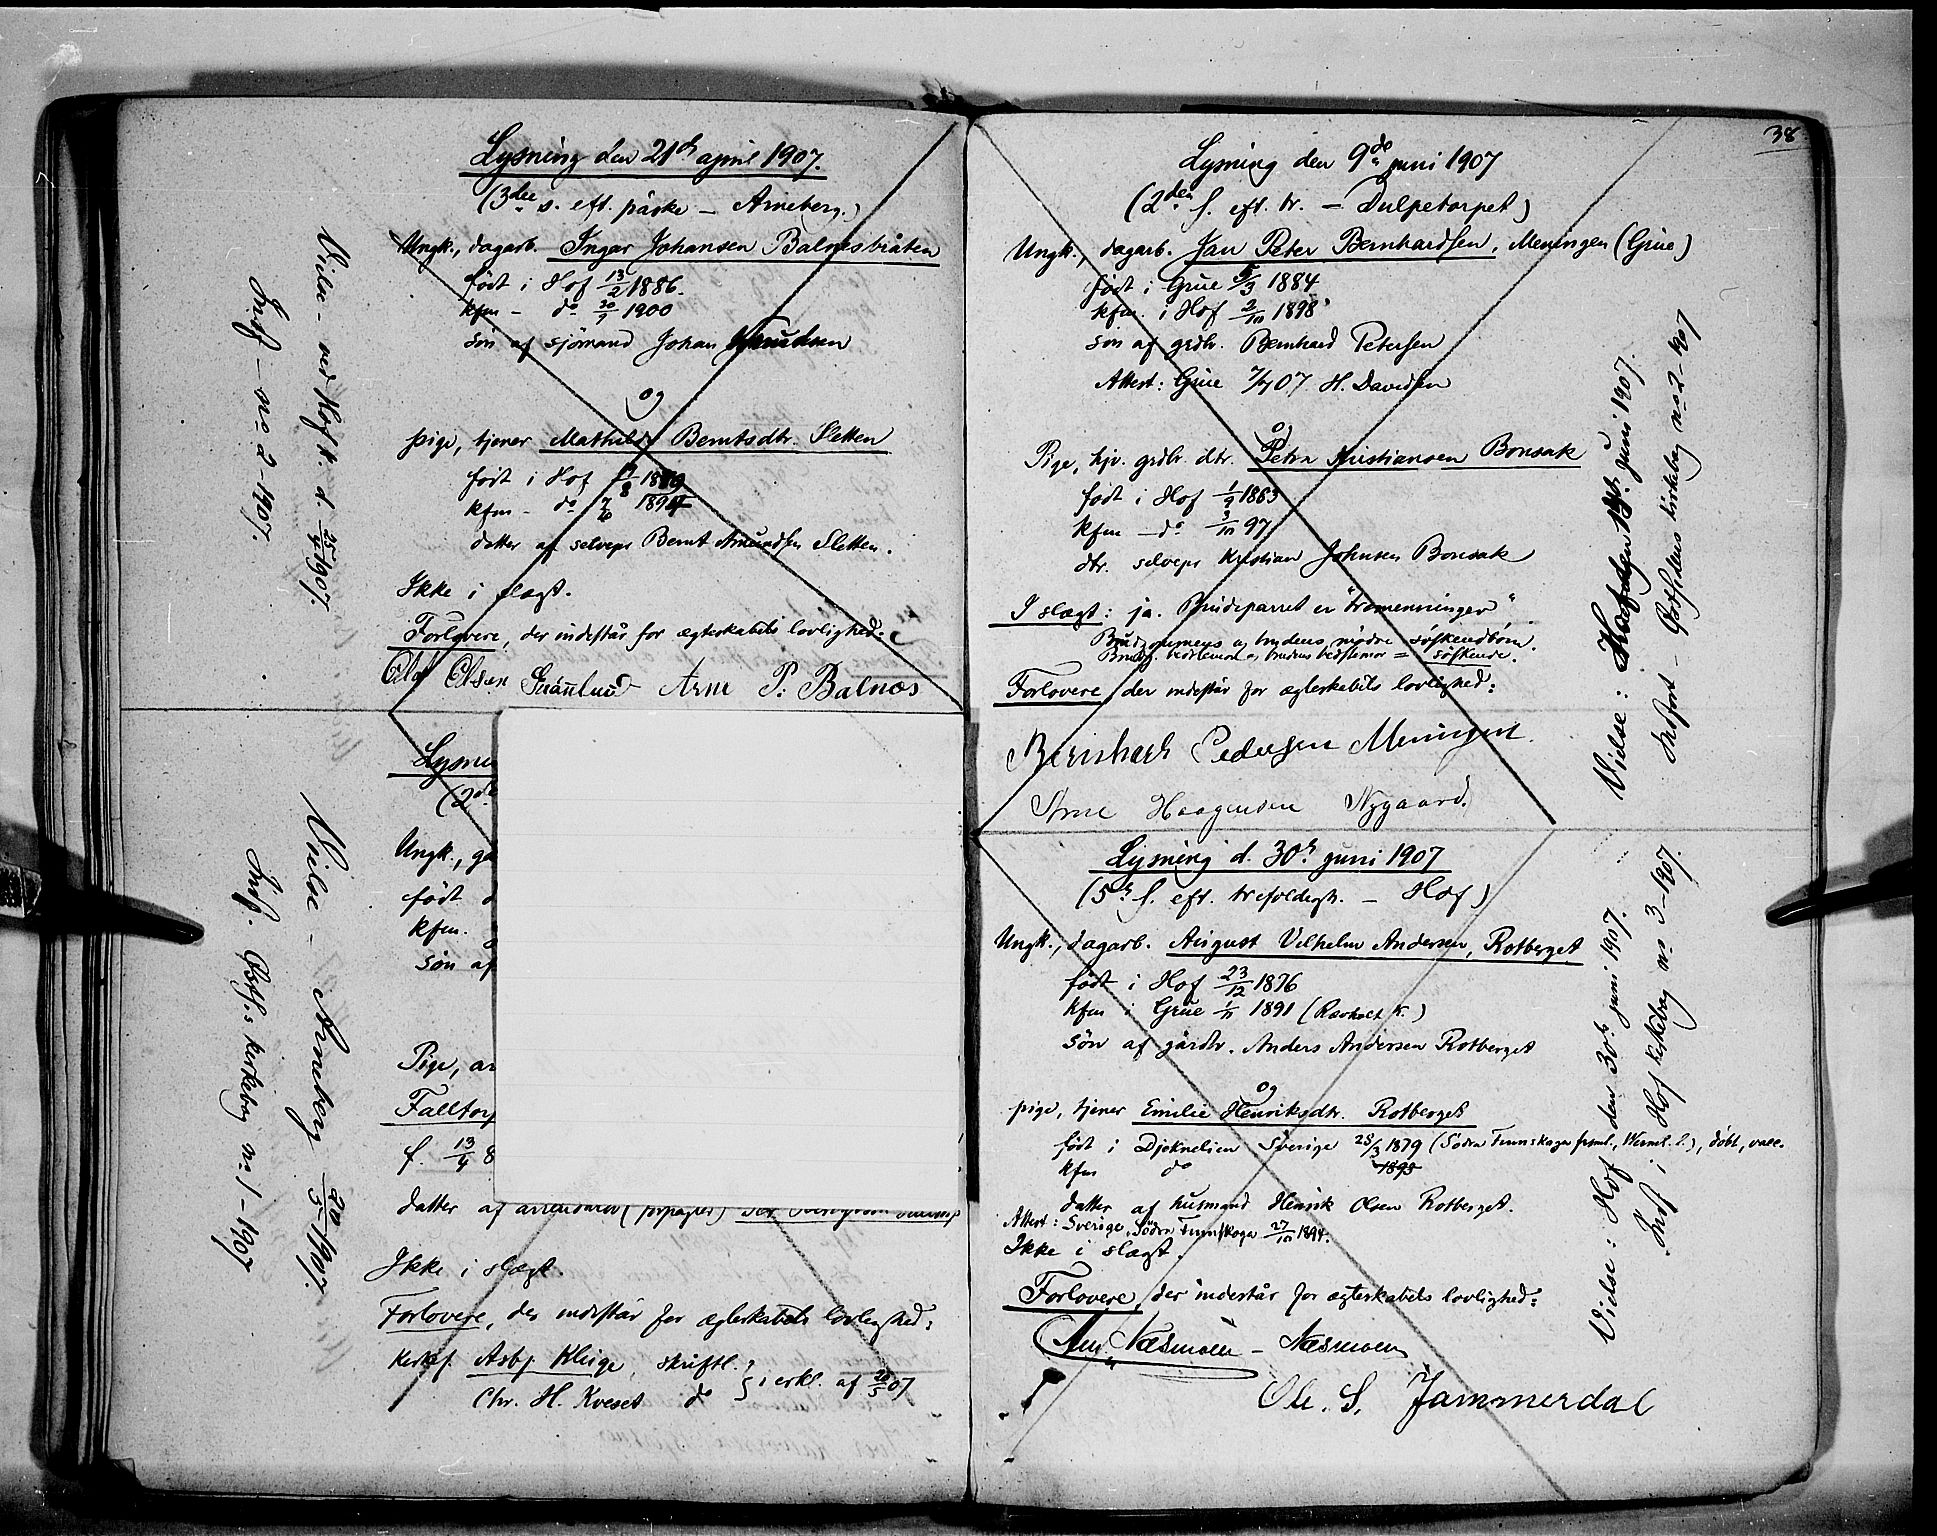 38
Lysning den 21de april 1907.
(3die s. eft. påske – Arneberg.)
Ungk., dagarb. Ingar Johansen Balnesbråten
født i Hof 13/2 1886.
kfm – do 30/9 1900
søn af sjømand Johan Knudsen
og
pige, tjener Mathilde Berntsdtr. Sletten
født i Hof /8 18
kfm – do 7/6 1894
datter af selveps Bernt Amundsen Sletten.
Ikke i slægt.
Forlovere, der indestår for ægteskabets lovlighed:
Olaf Olsen Grønlund Arne P: Balnæs
Vielse – ved Hof k. d. 25/4 1907.
Indf – no 2 – 1907.
Lysnin
(2de
Ungk., gå
født
kfm.
søn af
Pige, ar
Falltorp
f. 13/4 8
datter af arrendator (forpagter)
Ikke i slægt
Forlovere, der indestår for ægteskabets lovlighed:
kirkesf. Asbj Klinge, skriftl. } i erkl. af 20/5 07
Chr. H. Kveset do
Vielse – Arneberg 20/5 1907.
Indf. Østf.s kirkebog no 1 – 1907
Lysning den 9de juni 1907
(2den s. eft. tr. – Dulpetorpet)
Ungk., dagarb. Jan Peter Bernhardsen, Meningen (Grue)
født i Grue 5/3 1884
kfm. i Hof 2/10 1898
søn af grdbr. Bernhard Petersen
Attest: Grue 7/ 07 H. Davidsen
og
Pige, hjv. grdbr. dtr. Petra Kristiansen Bonsak
født i Hof 1/9 1883
kfm – do 3/10 97
dtr. selveps Kristian Johnsen Bonsak
I slægt: ja. Brudeparret er "tremenninger".
Brudgommens og brudens mødre søskendebørn.
Brudg. bedstemor og brudens bedstemor = søskende.
Forlovere der indestår for ægteskabets lovlighed:
Bernhard Pedersen Meningen.
Arne Haagensen Nygaard.
Vielse: juni 1907.
Indført – Østsidens kirkebog no 2 – 1907
Lysning d. 30te juni 1907
(5te s. eft. trefoldigh. – Hof)
Ungk., dagarb. August Vilhelm Andersen, Rotberget
født i Hof 23/12 1876
kfm i Grue 1/11 1891 (Revholt k.)
søn af gårdbr. Anders Andersen Rotberget
og
pige, tjener Emilie Henriksdtr. Rotberget
født i Djeknelien Sverige 25/3 1879 (Södra Finnskoga frsml., Werml. l.), døbt, vacc.
kfm do 1895
datter af husmand Henrik Olsen Rotberget.
Attest: Sverige, Södra Finnskoga 27/10 1894.
Ikke i slægt.
Forlovere, der indestår for ægteskabets lovlighed:
Næsmoen – Næsmoen
Ole. S. Jammerdal
Vielse: Hof den 30te juni 1907.
Indf i Hof kirkebog no 3 – 1907.